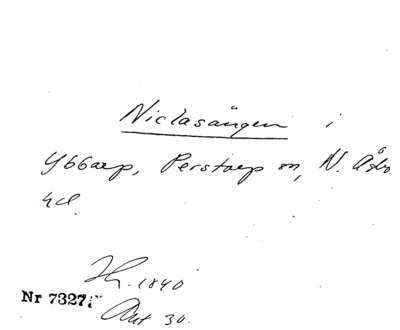 Niclasängen i
Ybbarp, Perstorp sn, N. Åsbo
hd.
Hr. 1840
Nr 7327
Akt 30.